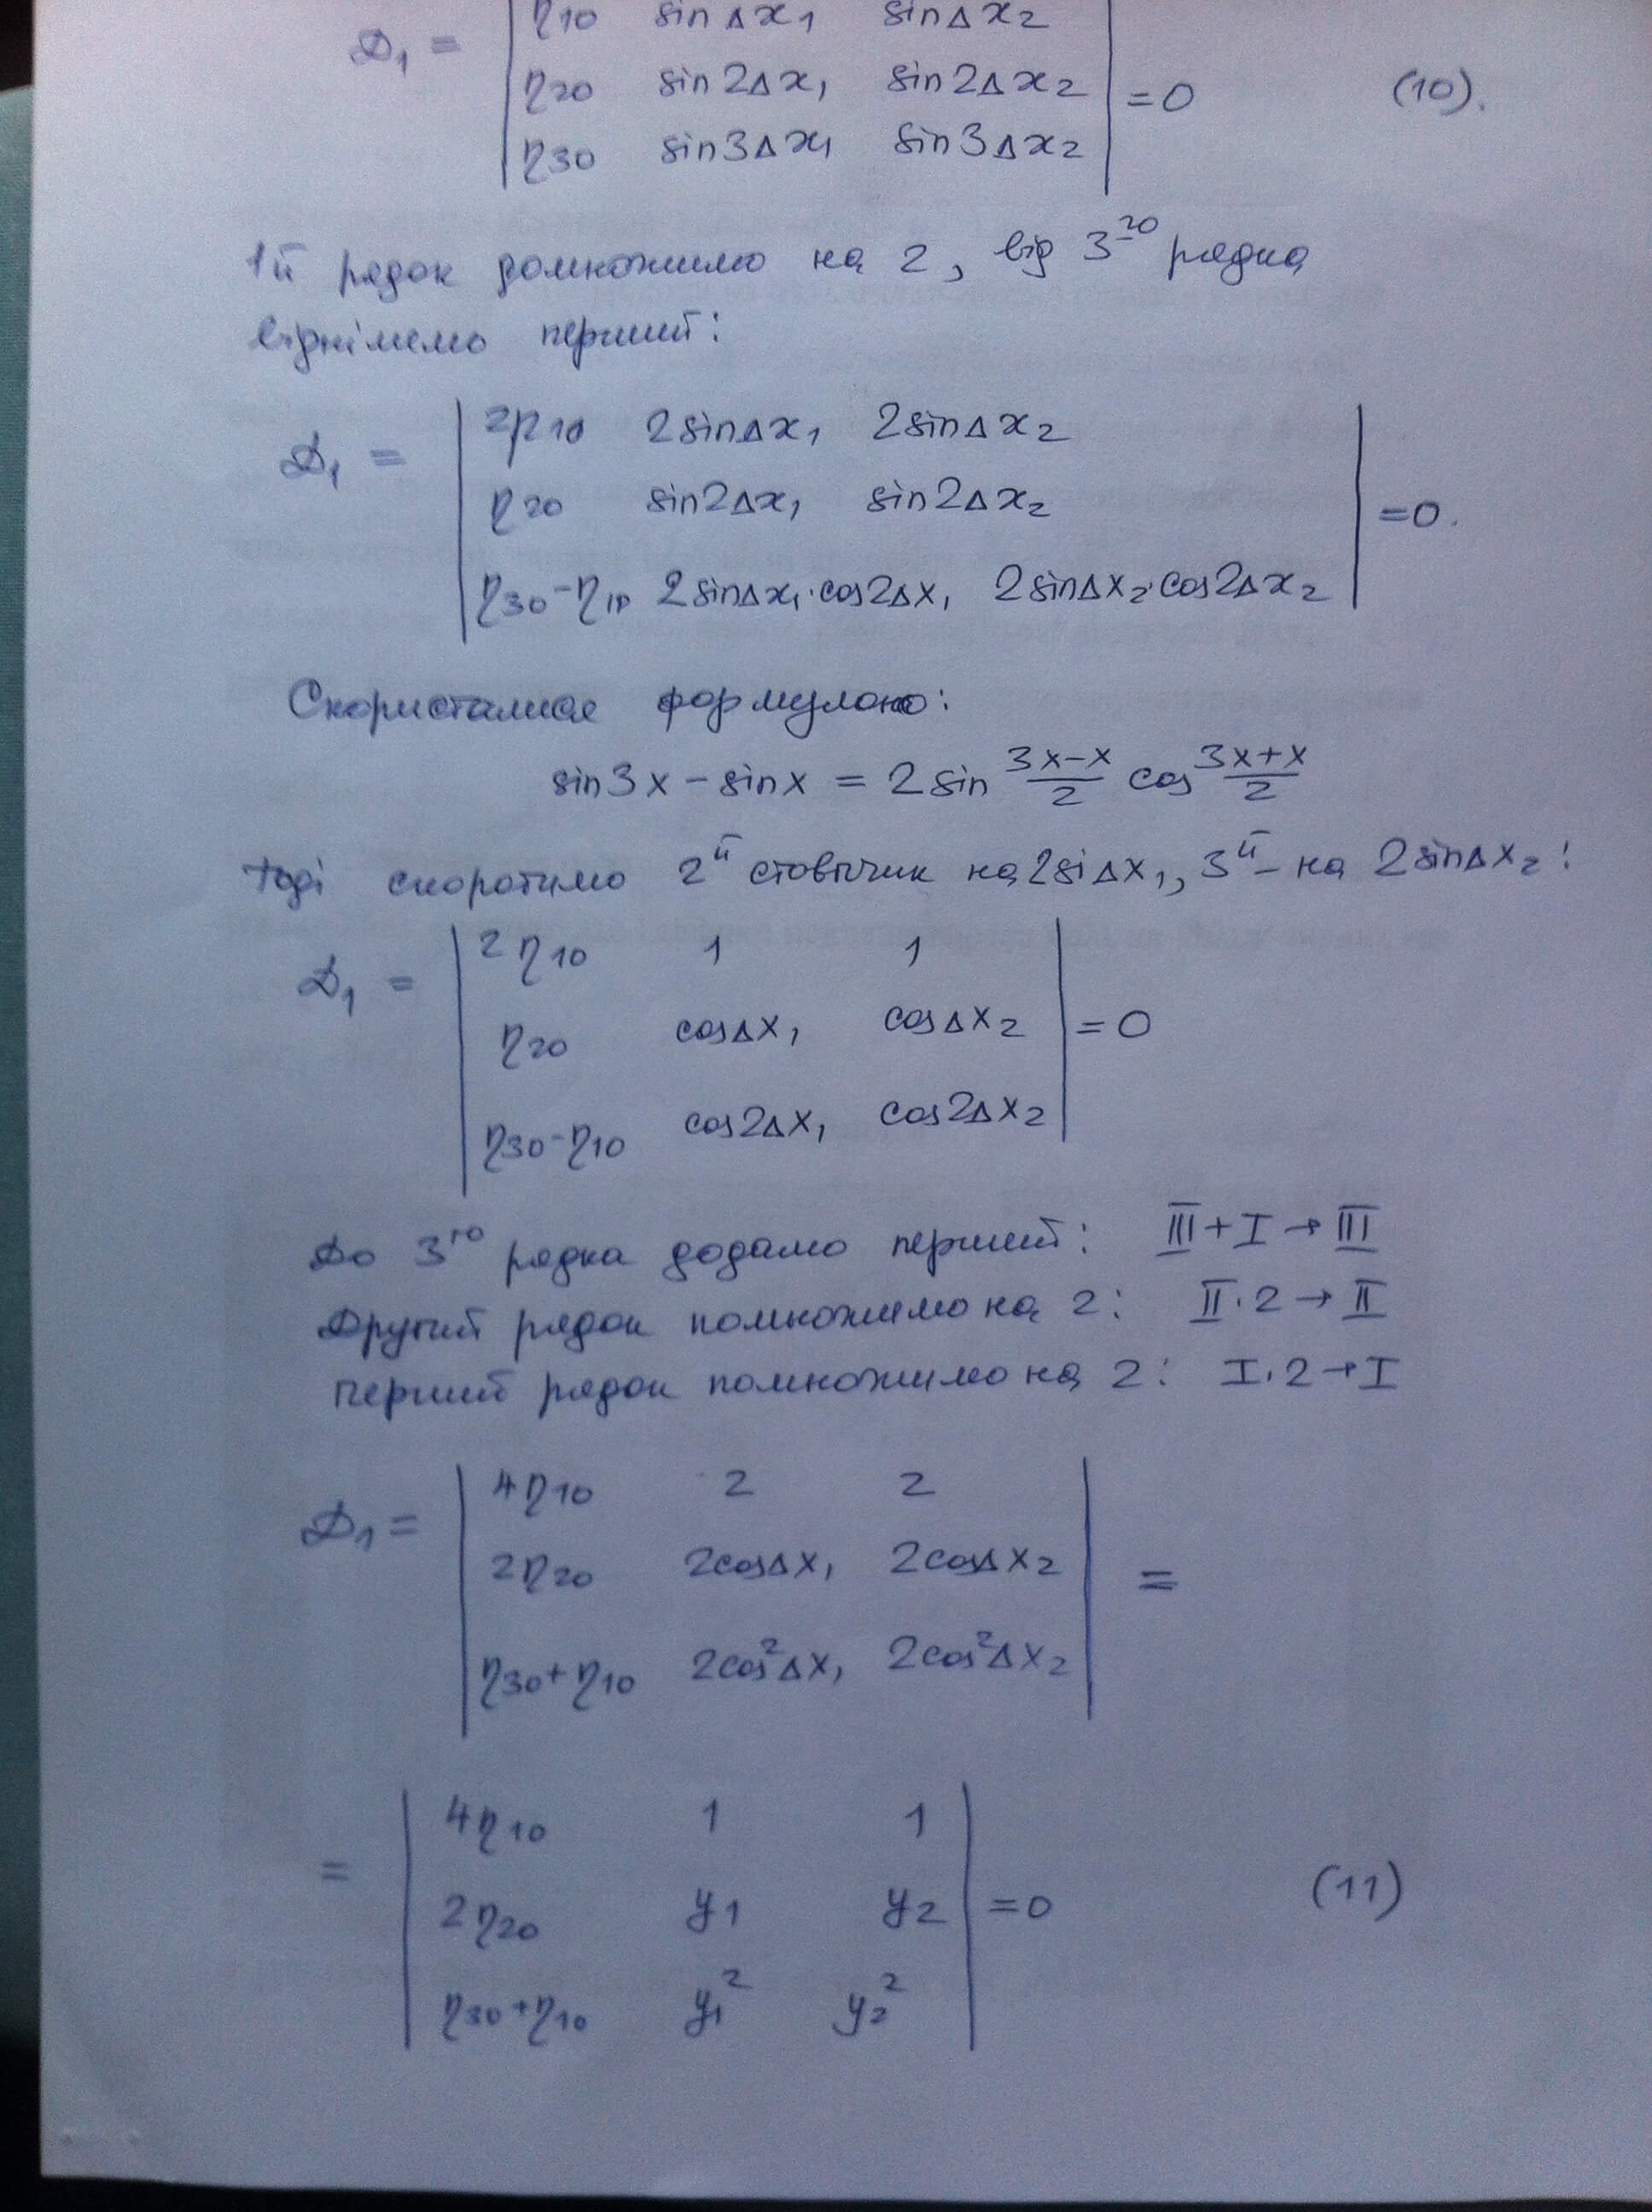 η10 sinΔx1 sinΔx2
D1 = η20 sin2Δx1 sin2Δx2 =0 (10).
η30 sin3Δx1 sin3Δx2
1й рядок домножимо на 2, від 3го рядка
віднімемо перший:
2η10 2sinΔx1 2sinΔx2
D1 = η20 sin2Δx1 sin2Δx2 =0.
η30-η10 2sinΔx1·cos2Δx1 2sinΔx2·cos2Δx2
Скористалися формулою:
sin3x - sinx = 2sin (3x-x)/2 cos (3x+x)/2
Тоді скоротимо 2й стовпчик на 2siΔx1, 3й - на 2sinΔx2:
2η10 1 1
D1 = η20 cosΔx1 cosΔx2 =0
η30-η10 cos2Δx1 cos2Δx2
До 3го рядка додамо перший: III+I→III
Другий рядок помножимо на 2: II·2→II
перший рядок помножимо на 2: I·2→I
4η10 2 2
D1= 2η20 2cosΔx1 2cosΔx2 =
η30+η10 2cos²Δx1 2cos²Δx2
4η10 1 1
= 2η20 y1 y2 =0 (11)
η30+η10 y1² y2²